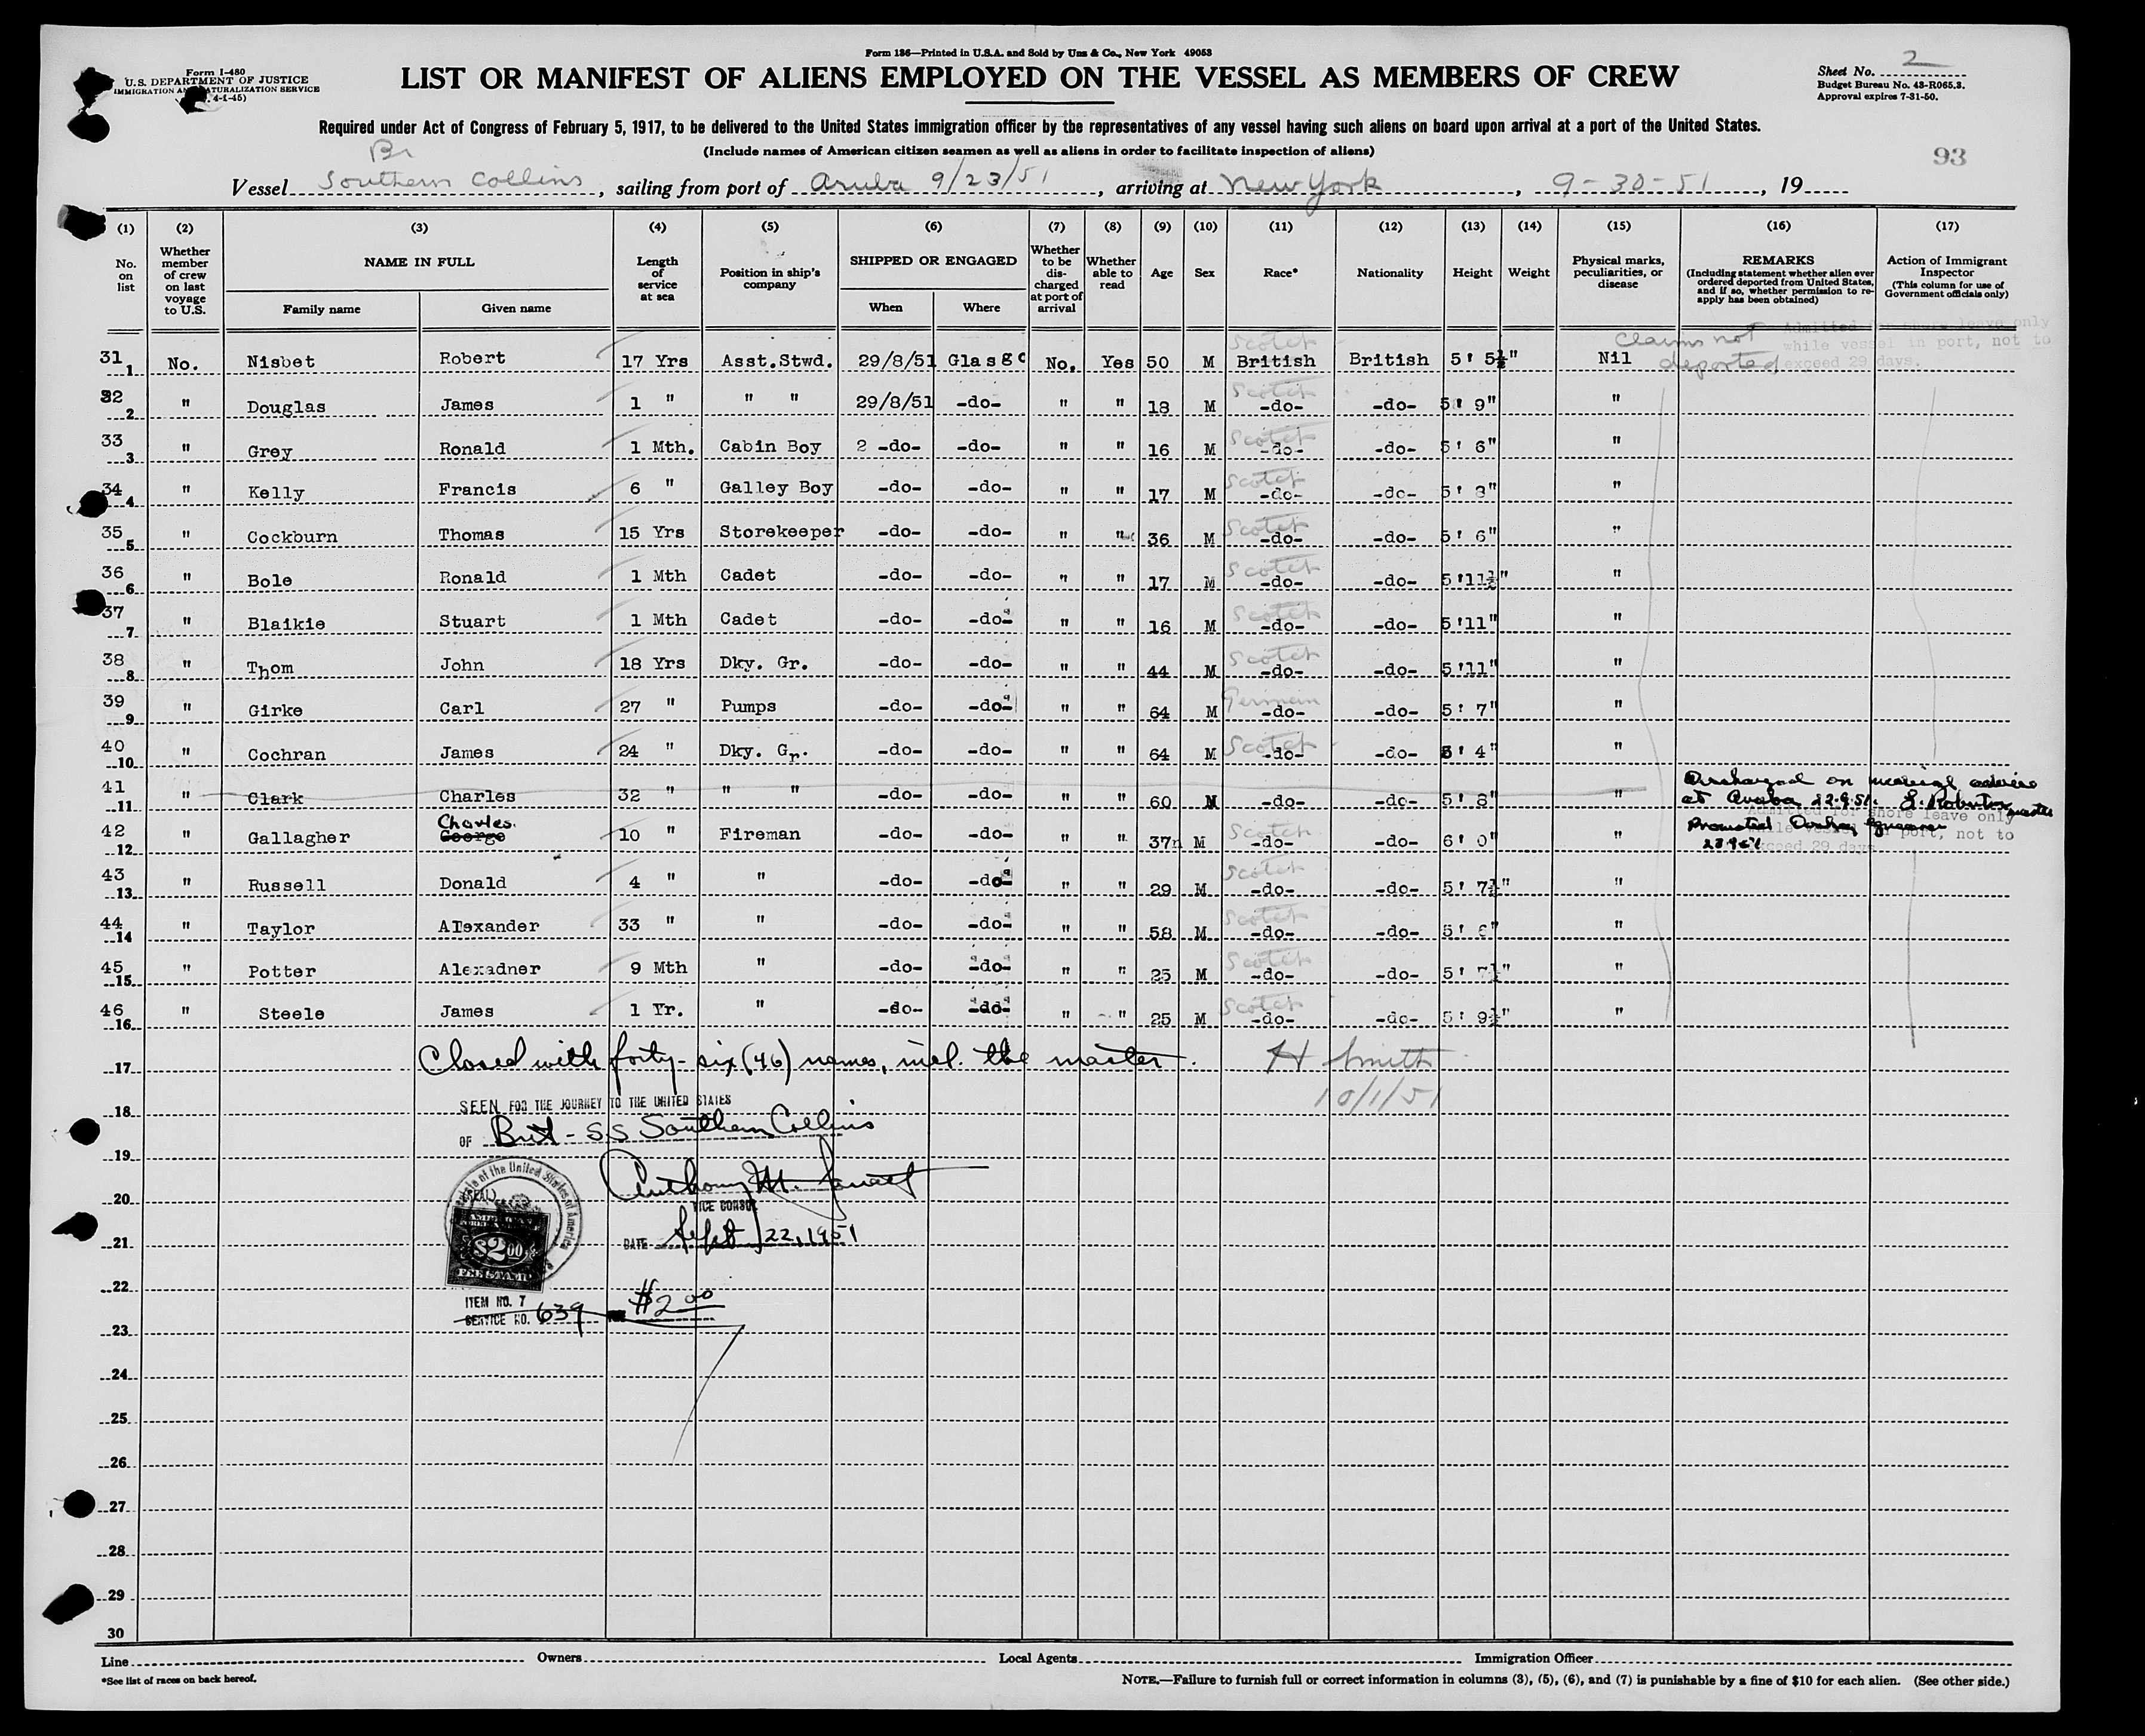 Form 136—Printed in U.S.A. and Sold by Unz & Co., New York 49053
Form I-480
U.S. DEPARTMENT OF JUSTICE
IMMIGRATION AND NATURALIZATION SERVICE
4-1-45)
LIST OR MANIFEST OF ALIENS EMPLOYED ON THE VESSEL AS MEMBERS OF CREW
Sheet No. 2
Budget Bureau No. 43-R065.3.
Approval expires 7-31-50.
Required under Act of Congress of February 5, 1917, to be delivered to the United States immigration officer by the representatives of any vessel having such aliens on board upon arrival at a port of the United States.
(Include names of American citizen seamen as well as aliens in order to facilitate inspection of aliens)
93
Br
Vessel Southern Collins, sailing from port of Aruba 9/23/51, arriving at New York, 9-30-51, 19
(1) (2) (3) (4) (5) (6) (7) (8) (9) (10) (11) (12) (13) (14) (15) (16) (17)
No. on list
Whether member of crew on last voyage to U.S.
NAME IN FULL
Family name Given name
Length of service at sea
Position in ship's company
SHIPPED OR ENGAGED
When Where
Whether to be discharged at port of arrival
Whether able to read
Age
Sex
Race*
Nationality
Height
Weight
Physical marks, peculiarities, or disease
REMARKS
(Including statement whether alien ever ordered deported from United States, and if so, whether permission to reapply has been obtained)
Action of Immigrant Inspector
(This column for use of Government officials only)
Admitted for shore leave only
while vessel in port, not to
exceed 29 days.
Claims not
deported
31 1 No. Nisbet Robert 17 Yrs Asst.Stwd. 29/8/51 Glasgo No. Yes 50 M Scotch British British 5' 5½" Nil
32 2 " Douglas James 1 " " " 29/8/51 -do- " " 18 M Scotch -do- -do- 5' 9" "
33 3 " Grey Ronald 1 Mth. Cabin Boy 2 -do- -do- " " 16 M Scotch -do- -do- 5' 6" "
34 4 " Kelly Francis 6 " Galley Boy -do- -do- " " 17 M Scotch -do- -do- 5' 8" "
35 5 " Cockburn Thomas 15 Yrs Storekeeper -do- -do- " " 36 M Scotch -do- -do- 5' 6" "
36 6 " Bole Ronald 1 Mth Cadet -do- -do- " " 17 M Scotch -do- -do- 5'11½" "
37 7 " Blaikie Stuart 1 Mth Cadet -do- -do- " " 16 M Scotch -do- -do- 5'11" "
38 8 " Thom John 18 Yrs Dky. Gr. -do- -do- " " 44 M Scotch -do- -do- 5'11" "
39 9 " Girke Carl 27 " Pumps -do- -do- " " 64 M German -do- -do- 5' 7" "
40 10 " Cochran James 24 " Dky. Gr. -do- -do- " " 64 M Scotch -do- -do- 5' 4" "
41 11 " Clark Charles 32 " " " -do- -do- " " 60 M -do- -do- 5' 8" " Discharged on medical advice at Aruba 22.9.51. master
42 12 " Gallagher Charles George 10 " Fireman -do- -do- " " 37 M Scotch -do- -do- 6' 0" " Promoted Donkey Greaser
Admitted for shore leave only
while vessel in port, not to
exceed 29 days
43 13 " Russell Donald 4 " " -do- -do- " " 29 M Scotch -do- -do- 5' 7½" "
44 14 " Taylor Alexander 33 " " -do- -do- " " 58 M Scotch -do- -do- 5' 6" "
45 15 " Potter Alexadner 9 Mth " -do- -do- " " 25 M Scotch -do- -do- 5' 7½" "
46 16 " Steele James 1 Yr. " -do- -do- " " 25 M Scotch -do- -do- 5' 9½" "
17 Closed with forty-six (46) names, incl. the master. H Smith
10/1/51
18 SEEN FOR THE JOURNEY TO THE UNITED STATES
OF Brit - SS Southern Collins
19
20 Anthony M.
VICE CONSUL
21 DATE Sept 22, 1951
(SEAL)
of the United States of America
AMERICAN
$2 00
FEE STAMP
22
ITEM NO. 7 $2.00
SERVICE NO. 639
23
24
25
26
27
28
29
30
Line Owners Local Agents Immigration Officer
*See list of races on back hereof.
NOTE.—Failure to furnish full or correct information in columns (3), (5), (6), and (7) is punishable by a fine of $10 for each alien. (See other side.)